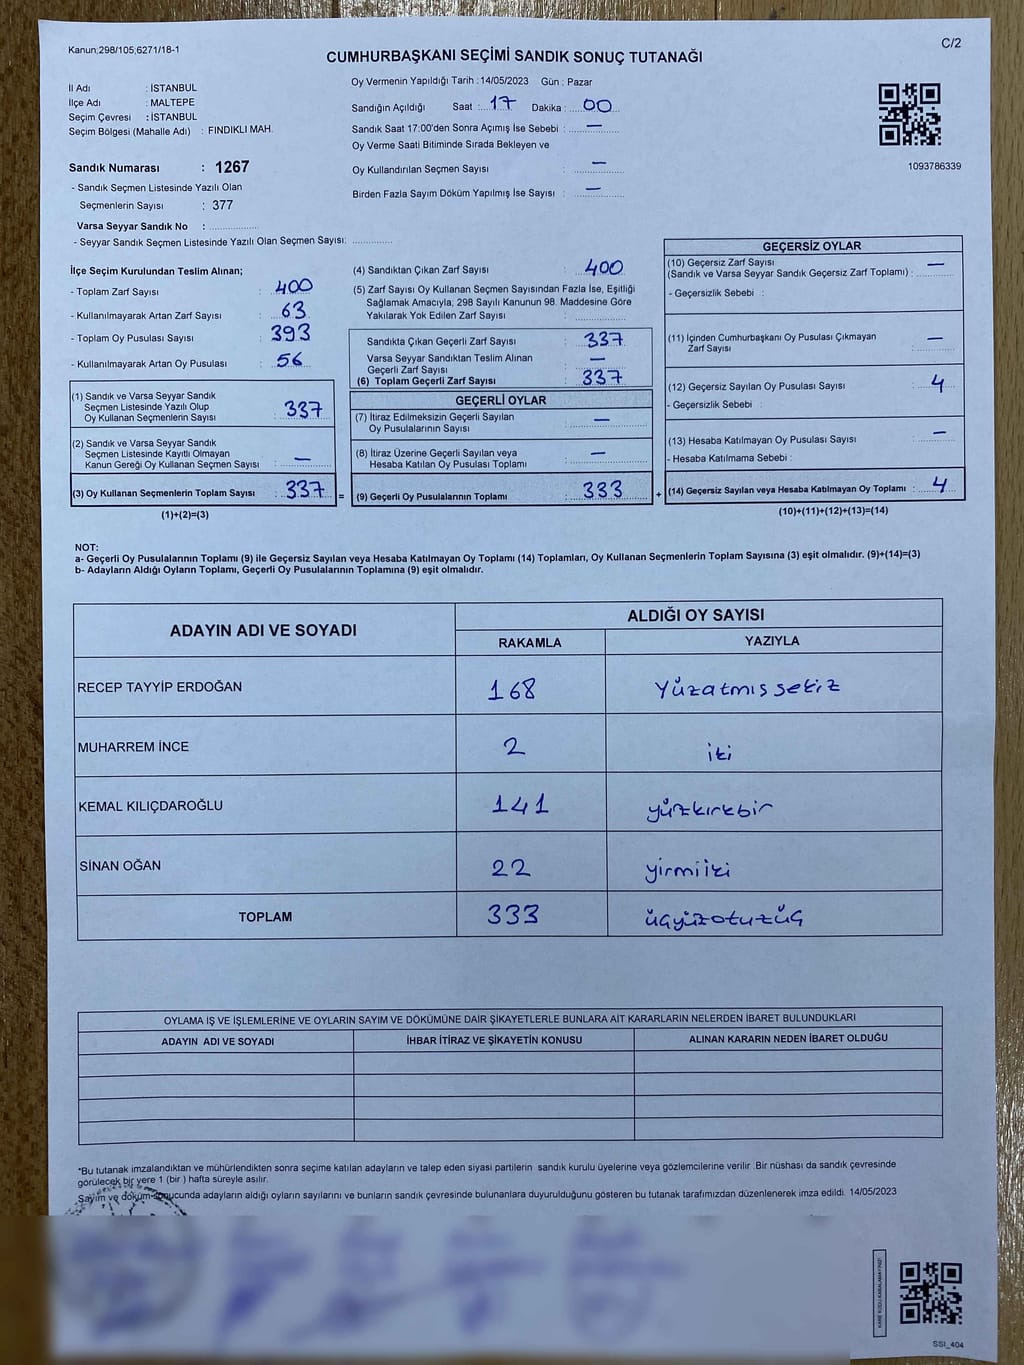 Kanun;298/105;6271/18-1
C/2
CUMHURBAŞKANI SEÇİMİ SANDIK SONUÇ TUTANAĞI
İl Adı : İSTANBUL
İlçe Adı : MALTEPE
Seçim Çevresi : İSTANBUL
Seçim Bölgesi (Mahalle Adı) : FINDIKLI MAH.
Sandık Numarası : 1267
- Sandık Seçmen Listesinde Yazılı Olan
Seçmenlerin Sayısı : 377
Varsa Seyyar Sandık No :
- Seyyar Sandık Seçmen Listesinde Yazılı Olan Seçmen Sayısı:
Oy Vermenin Yapıldığı Tarih : 14/05/2023 Gün : Pazar
Sandığın Açıldığı Saat : 17 Dakika : 00
Sandık Saat 17:00'den Sonra Açımış İse Sebebi : —
Oy Verme Saati Bitiminde Sırada Bekleyen ve
Oy Kullandırılan Seçmen Sayısı : —
Birden Fazla Sayım Döküm Yapılmış İse Sayısı : —
1093786339
İlçe Seçim Kurulundan Teslim Alınan;
- Toplam Zarf Sayısı : 400
- Kullanılmayarak Artan Zarf Sayısı : 63
- Toplam Oy Pusulası Sayısı : 393
- Kullanılmayarak Artan Oy Pusulası : 56
(1) Sandık ve Varsa Seyyar Sandık
Seçmen Listesinde Yazılı Olup
Oy Kullanan Seçmenlerin Sayısı : 337
(2) Sandık ve Varsa Seyyar Sandık
Seçmen Listesinde Kayıtlı Olmayan
Kanun Gereği Oy Kullanan Seçmen Sayısı : —
(3) Oy Kullanan Seçmenlerin Toplam Sayısı : 337 =
(1)+(2)=(3)
(4) Sandıktan Çıkan Zarf Sayısı : 400
(5) Zarf Sayısı Oy Kullanan Seçmen Sayısından Fazla İse, Eşitliği
Sağlamak Amacıyla, 298 Sayılı Kanunun 98. Maddesine Göre
Yakılarak Yok Edilen Zarf Sayısı :
Sandıkta Çıkan Geçerli Zarf Sayısı : 337
Varsa Seyyar Sandıktan Teslim Alınan
Geçerli Zarf Sayısı : —
(6) Toplam Geçerli Zarf Sayısı : 337
GEÇERLİ OYLAR
(7) İtiraz Edilmeksizin Geçerli Sayılan
Oy Pusulalarının Sayısı : —
(8) İtiraz Üzerine Geçerli Sayılan veya
Hesaba Katılan Oy Pusulası Toplamı : —
(9) Geçerli Oy Pusulalarının Toplamı : 333 +
GEÇERSİZ OYLAR
(10) Geçersiz Zarf Sayısı
(Sandık ve Varsa Seyyar Sandık Geçersiz Zarf Toplamı) : —
- Geçersizlik Sebebi :
(11) İçinden Cumhurbaşkanı Oy Pusulası Çıkmayan
Zarf Sayısı : —
(12) Geçersiz Sayılan Oy Pusulası Sayısı : 4
- Geçersizlik Sebebi :
(13) Hesaba Katılmayan Oy Pusulası Sayısı : —
- Hesaba Katılmama Sebebi :
(14) Geçersiz Sayılan veya Hesaba Katılmayan Oy Toplamı : 4
(10)+(11)+(12)+(13)=(14)
NOT:
a- Geçerli Oy Pusulalarının Toplamı (9) ile Geçersiz Sayılan veya Hesaba Katılmayan Oy Toplamı (14) Toplamları, Oy Kullanan Seçmenlerin Toplam Sayısına (3) eşit olmalıdır. (9)+(14)=(3)
b- Adayların Aldığı Oyların Toplamı, Geçerli Oy Pusulalarının Toplamına (9) eşit olmalıdır.
ADAYIN ADI VE SOYADI ALDIĞI OY SAYISI
RAKAMLA YAZIYLA
RECEP TAYYİP ERDOĞAN 168 Yüzatmış sekiz
MUHARREM İNCE 2 iki
KEMAL KILIÇDAROĞLU 141 yüzkırkbir
SİNAN OĞAN 22 yirmiiki
TOPLAM 333 üçyüzotuzüç
OYLAMA İŞ VE İŞLEMLERİNE VE OYLARIN SAYIM VE DÖKÜMÜNE DAİR ŞİKAYETLERLE BUNLARA AİT KARARLARIN NELERDEN İBARET BULUNDUKLARI
ADAYIN ADI VE SOYADI İHBAR İTİRAZ VE ŞİKAYETİN KONUSU ALINAN KARARIN NEDEN İBARET OLDUĞU
*Bu tutanak imzalandıktan ve mühürlendikten sonra seçime katılan adayların ve talep eden siyasi partilerin sandık kurulu üyelerine veya gözlemcilerine verilir .Bir nüshası da sandık çevresinde
görülecek bir yere 1 (bir ) hafta süreyle asılır.
Sayım ve döküm sonucunda adayların aldığı oyların sayılarını ve bunların sandık çevresinde bulunanlara duyurulduğunu gösteren bu tutanak tarafımızdan düzenlenerek imza edildi. 14/05/2023
KARE KODU KARALAMAYINIZ!
SSI_404